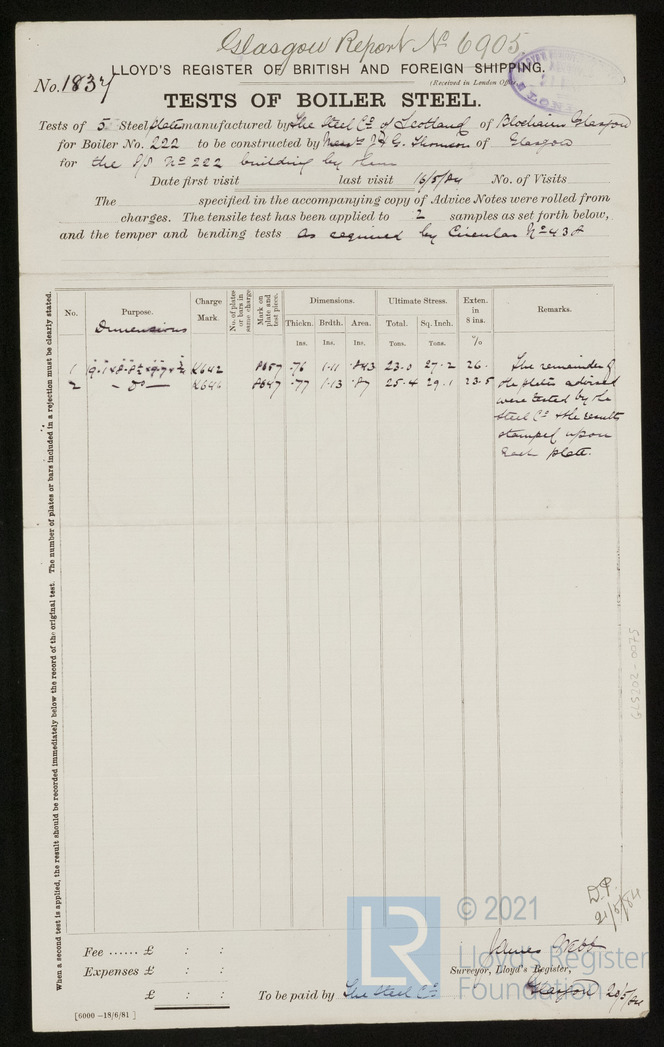 Glasgow Report No 6905
No. 1837
LLOYD'S REGISTER OF BRITISH AND FOREIGN SHIPPING.
(Received in London Office,
TESTS OF BOILER STEEL.
Tests of 5 Steel plates manufactured by The Steel Co of Scotland of Blochairn Glasgow
for Boiler No. 222 to be constructed by Messrs J & G. Thomson of Glasgow
for the No 222 building by them
Date first visit last visit 16/5/84 No. of Visits
The specified in the accompanying copy of Advice Notes were rolled from
charges. The tensile test has been applied to 2 samples as set forth below,
and the temper and bending tests as required by Circular No 438
When a second test is applied, the result should be recorded immediately below the record of the original test. The number of plates or bars included in a rejection must be clearly stated.
No. Purpose. Charge Mark. No. of plates or bars in same charge Mark on plate and test piece. Dimensions. Ultimate Stress. Exten. in 8 ins. Remarks.
Dimensions
Thickn. Brdth. Area. Total. Sq. Inch.
Ins. Ins. Ins. Tons. Tons. %
1 K642 8657 .76 1.11 .843 23.0 27.2 26. The remainder of
2 Do K646 8647 .77 1.13 .87 25.4 29.1 23.5 the plates advised
were tested by the
Steel Co & the results
stamped upon
each plate.
GLS202-0075
D.P.
21/5/84
© 2021
LR
Lloyd's Register
Foundation
Fee ...... £ : :
Expenses £ : :
£ : :
James
Surveyor, Lloyd's Register,
To be paid by The Steel Co
Glasgow 20/5/84
[6000—18/6/81]